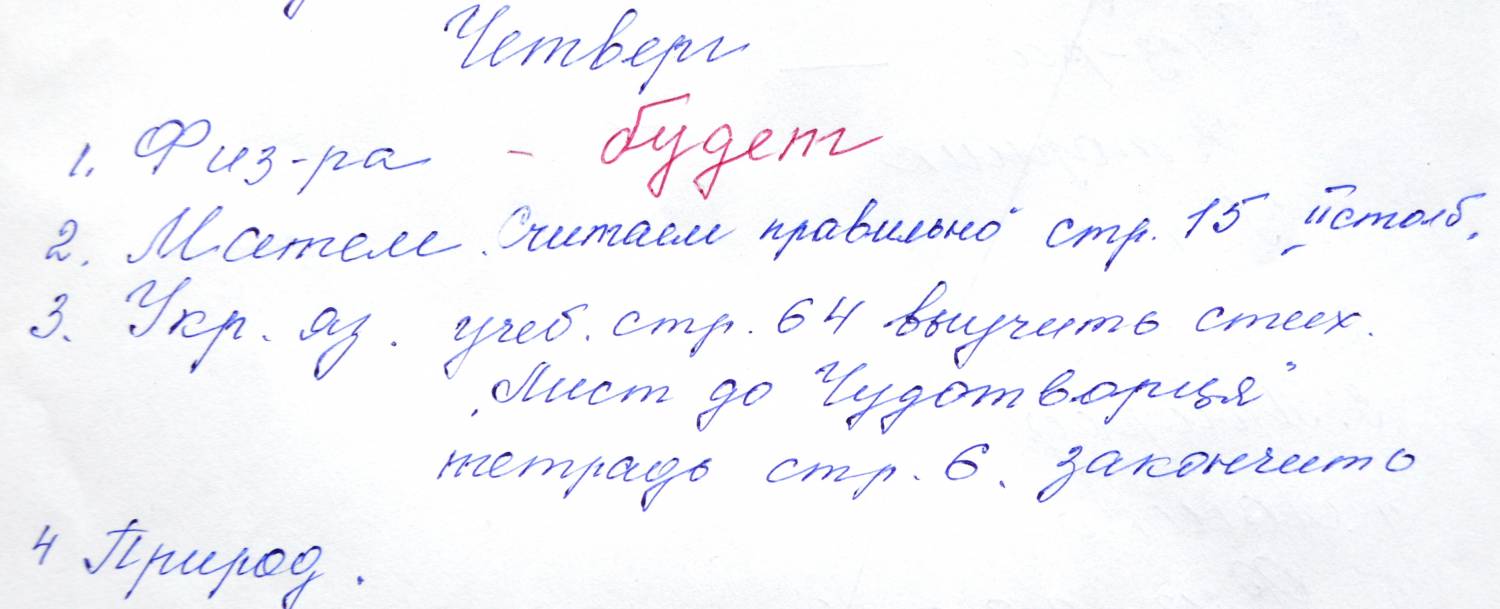 Четверг
1. Физ-ра - будет
2. Матем. Считаем правильно стр. 15 II столб.
3. Укр. яз. учеб. стр. 64 выучить стих.
„Лист до Чудотворця"
тетрадь стр. 6. закончить
4 Природ.